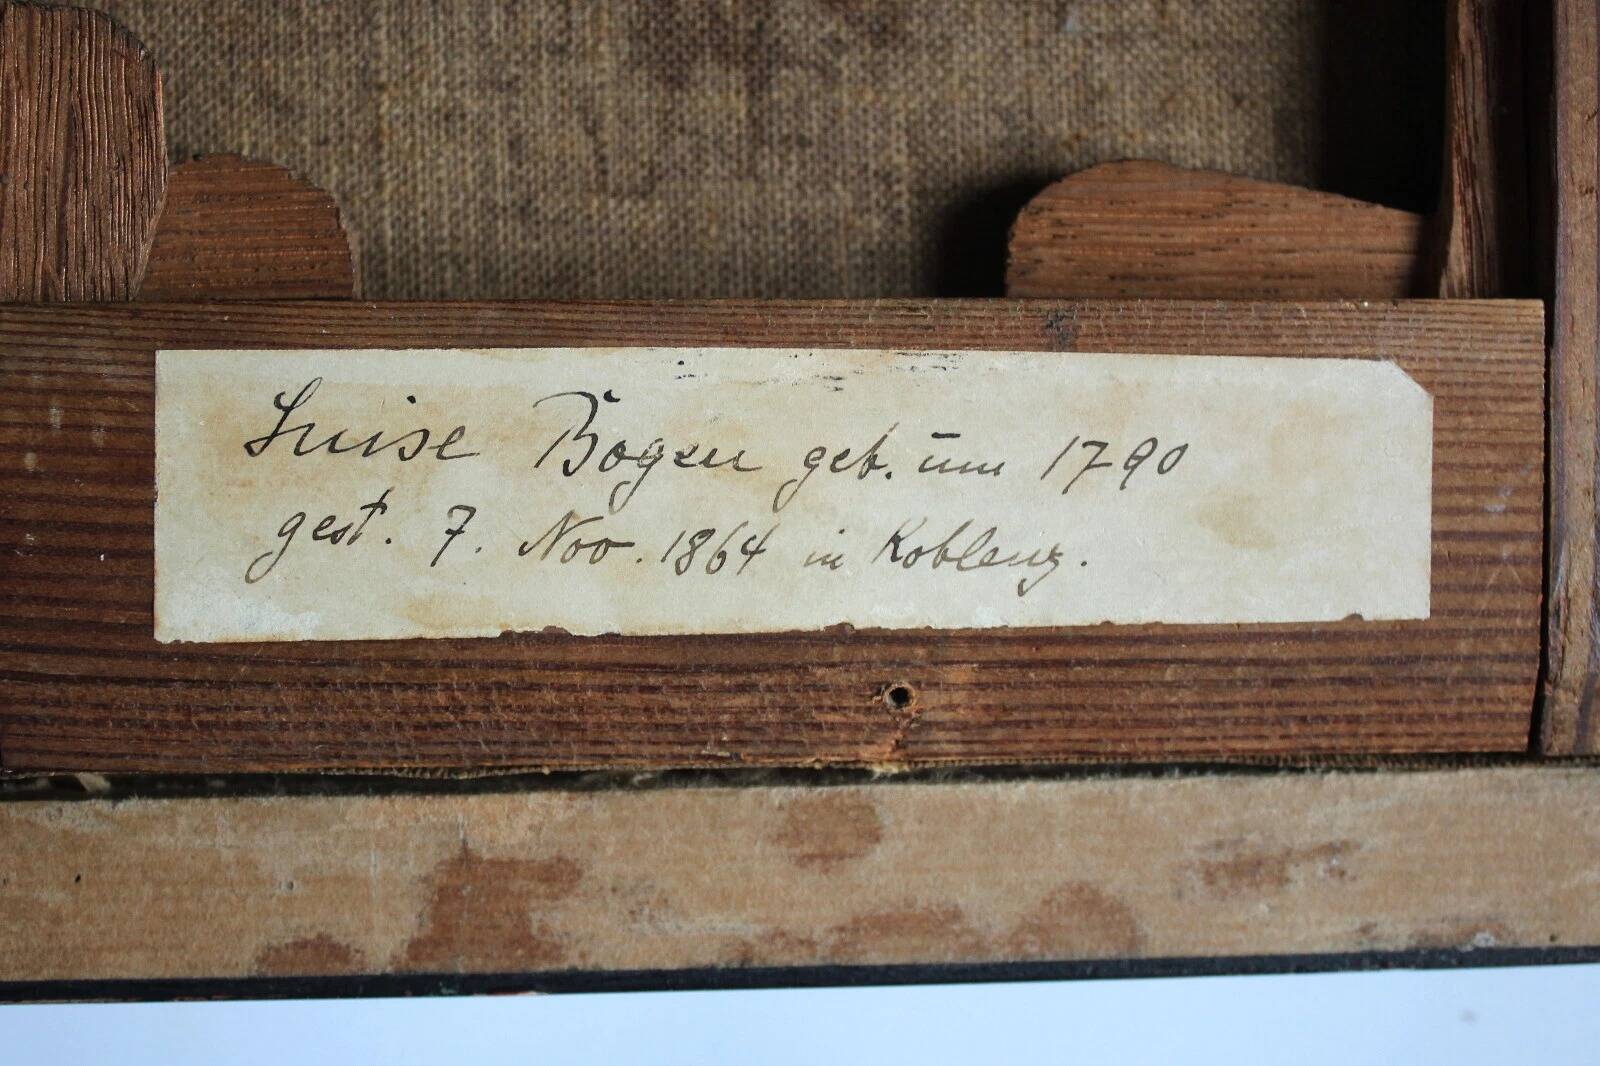 Luise Bogen geb. um 1790
gest. 7. Nov. 1864 in Koblenz.